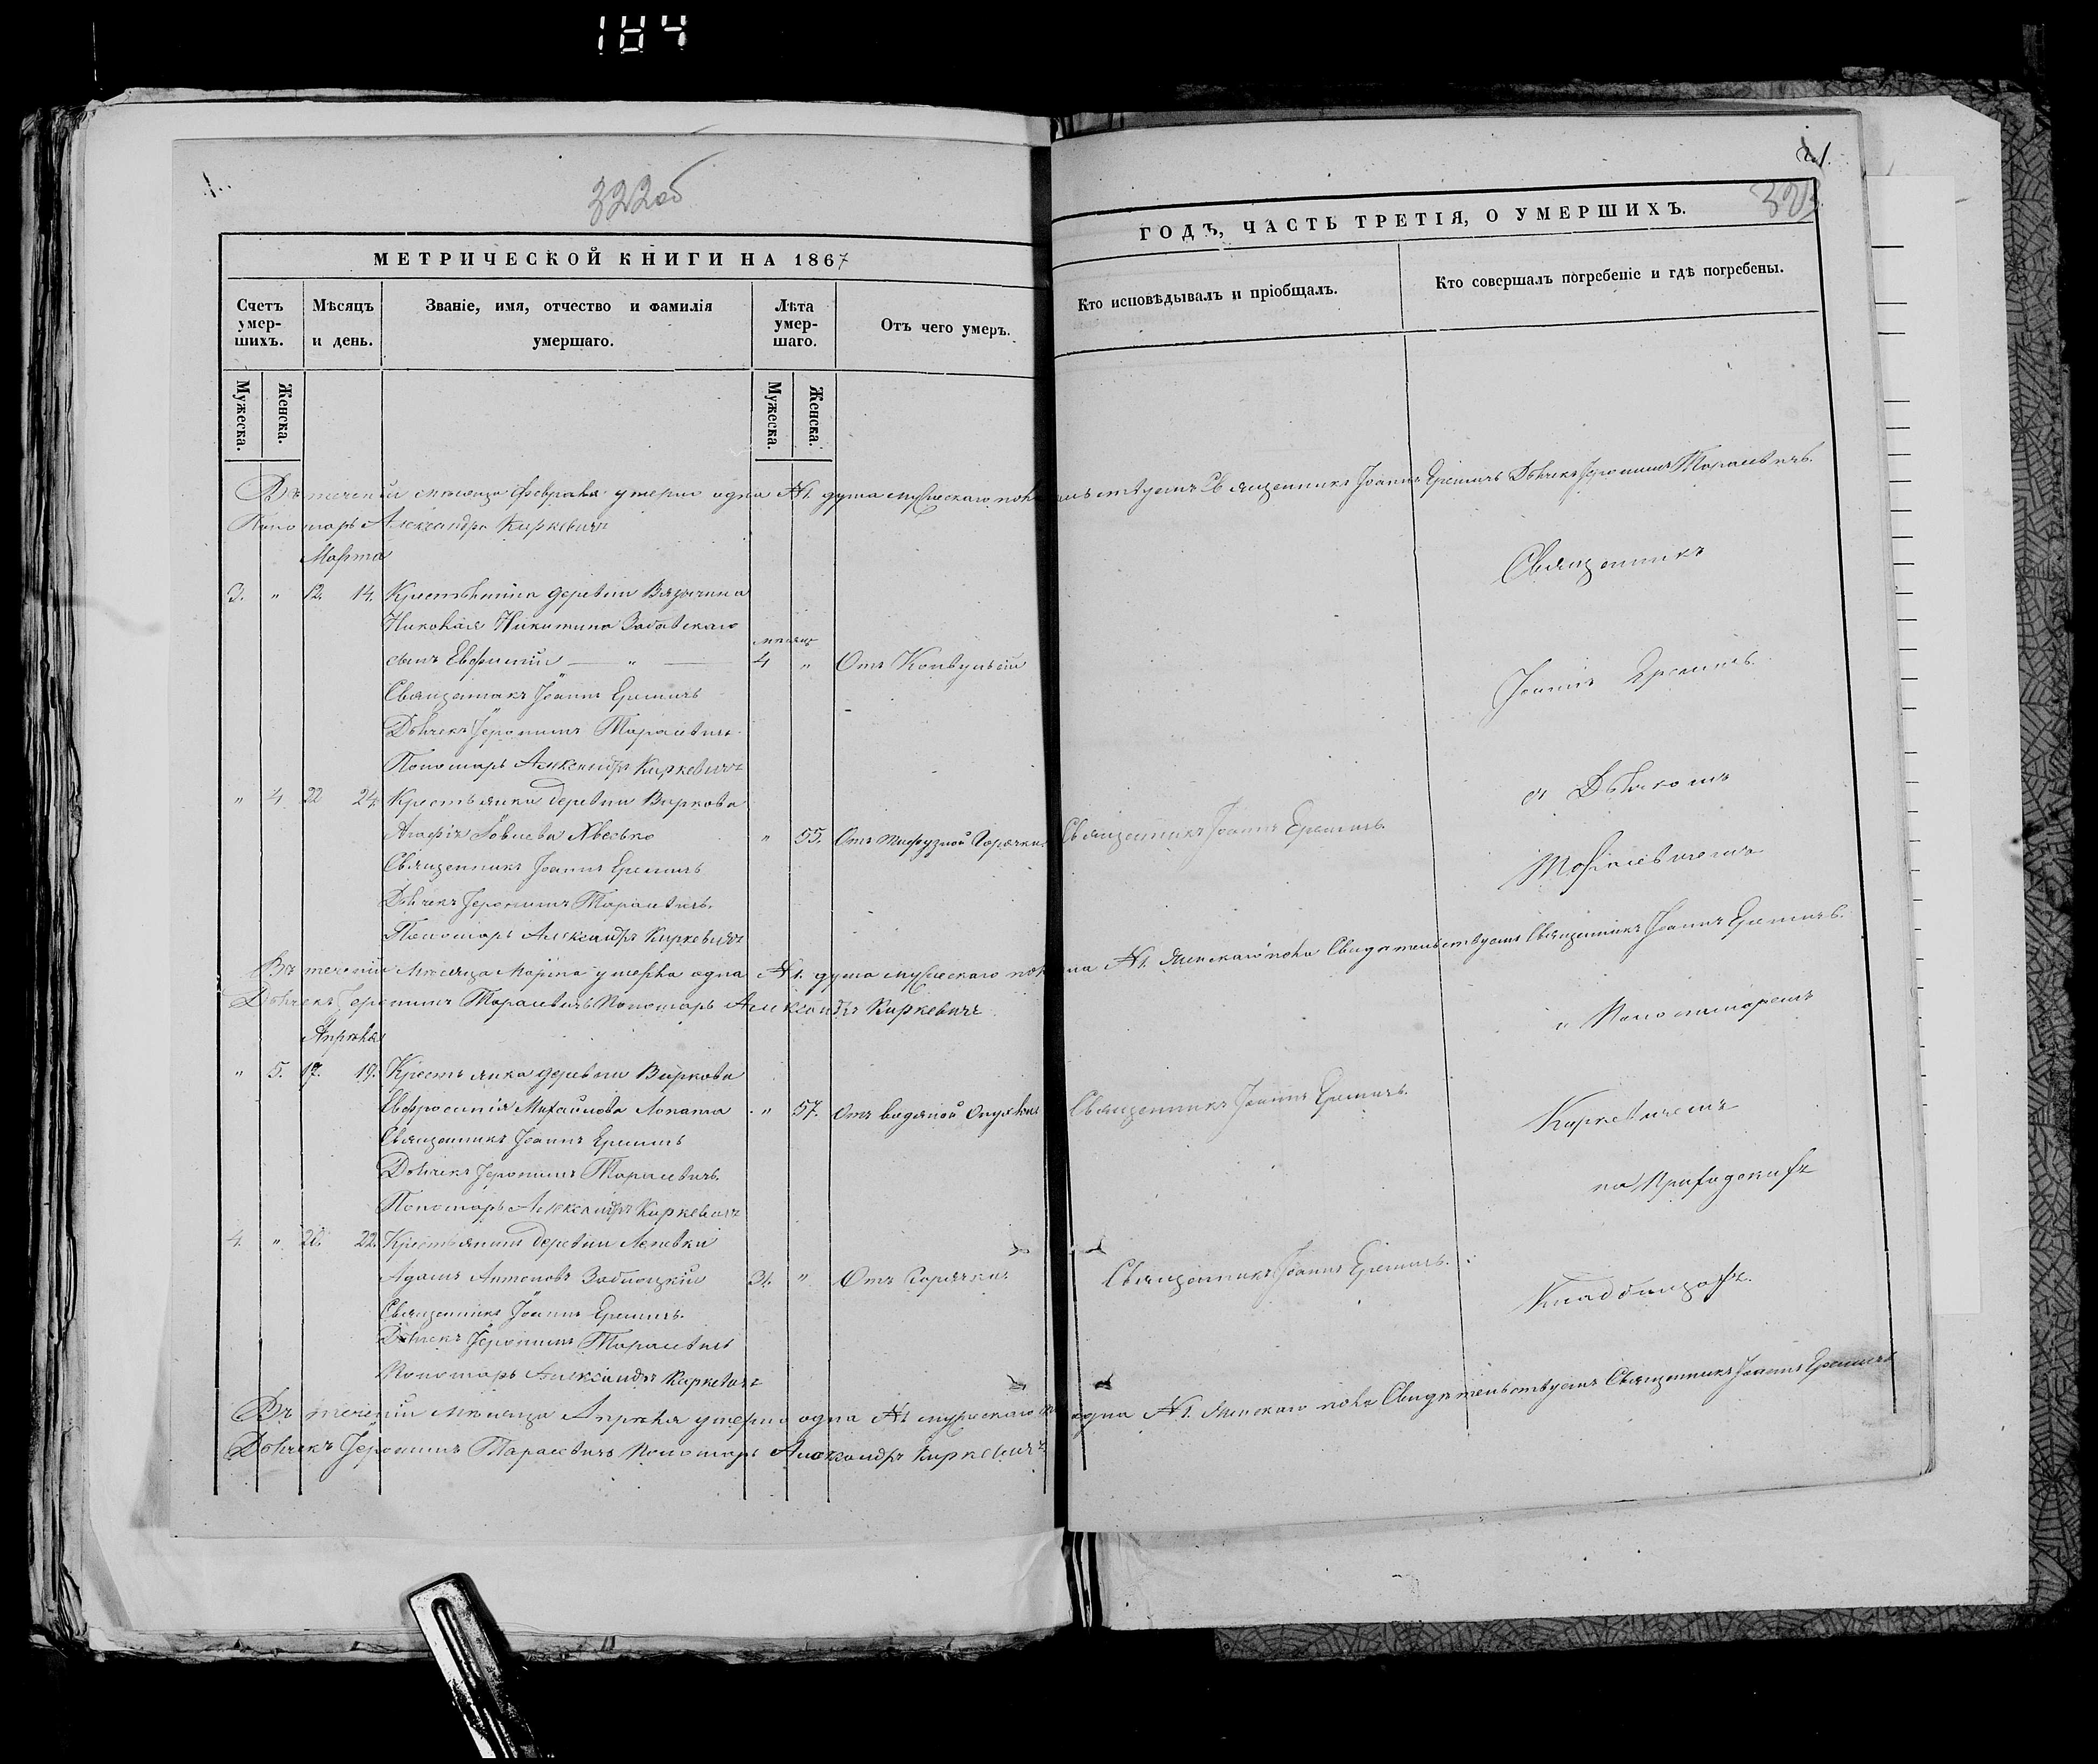 184
322об
МЕТРИЧЕСКОЙ КНИГИ НА 1867
Счетъ умер-шихъ.
Мѣсяцъ и день.
Званіе, имя, отчество и фамилія умершаго.
Лѣта умер-шаго.
Отъ чего умеръ.
Мужеска.
Женска.
Мужеска.
Женска.
Въ теченіи мѣсяца Февраля умерло одна №1. душа мужескаго пола
Пономарь Александръ Киркевичъ
Марта
3. " 12. 14. Крестьянина деревни
Николая Никитина
мѣсяц
сынъ Евфимій — " — 4 " Отъ Конвульсій
Священникъ Іоаннъ Еремичъ
Дьячекъ Іеронимъ Тарасевичъ
Пономарь Александръ Киркевичъ
" 4. 22 24. Крестьянка деревни Виркова
Агафія " 55. Отъ Горячки
Священникъ Іоаннъ Еремичъ
Дьячекъ Іеронимъ Тарасевичъ.
Пономарь Александръ Киркевичъ
Въ теченіи Мѣсяца Марта умерла одна №1. душа мужескаго
Дьячекъ Іеронимъ Тарасевичъ Пономарь Александръ Киркевичъ
Апрѣля
" 5. 17. 19. Крестьянка деревни Виркова
Евфросинія Михайлова Лопата " 57. Отъ водяной Опухоли
Священникъ Іоаннъ Еремичъ
Дьячекъ Іеронимъ Тарасевичъ.
Пономарь Александръ Киркевичъ
4. " 20. 22. Крестьянинъ деревни Лепевки
Адамъ Антоновъ Заблоцкій 31. " Отъ Горячки
Священникъ Іоаннъ Еремичъ.
Дьячекъ Іеронимъ Тарасевичъ
Пономарь Александръ Киркевичъ
Въ теченіи мѣсяца Апрѣля умерло одна №1 мужескаго
Дьячекъ Іеронимъ Тарасевичъ Пономарь Александръ Киркевичъ
ГОДЪ, ЧАСТЬ ТРЕТІЯ, О УМЕРШИХЪ.
Кто исповѣдывалъ и пріобщалъ.
Кто совершалъ погребеніе и гдѣ погребены.
Священникъ Іоаннъ Еремичъ Дьячекъ Іеронимъ Тарасевичъ.
Священникъ
Іоаннъ Еремичъ
съ Дьячкомъ
Священникъ Іоаннъ Еремичъ.
Тарасевичемъ
№1. Женскаго пола Свидѣтельствуетъ Священникъ Іоаннъ Еремичъ.
и Пономаремъ
Священникъ Іоаннъ Еремичъ.
Киркевичемъ
на Приходскихъ
Священникъ Іоаннъ Еремичъ.
Кладбищахъ.
одна №1. Женскаго пола Свидѣтельствуетъ Священникъ Іоаннъ Еремичъ